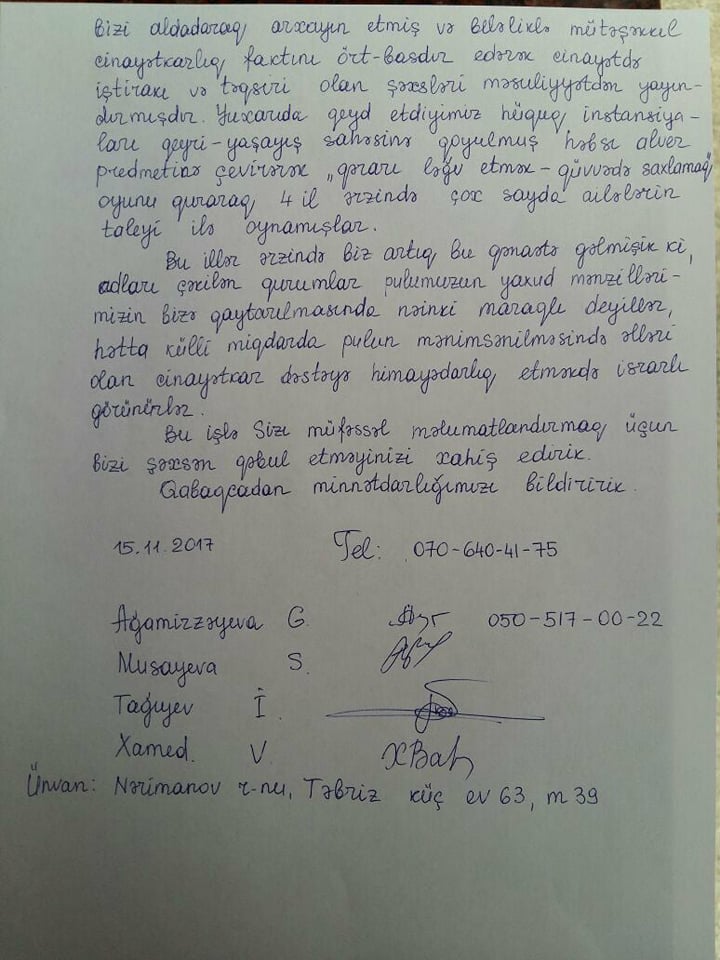 bizi aldadaraq arxayın etmiş və beləliklə mütəşəkkil
cinayətkarlıq faktını ört-basdır edərək cinayətdə
iştirakı və təqsiri olan şəxsləri məsuliyyətdən yayın-
dırmışdır. Yuxarıda qeyd etdiyimiz hüquq instansiya-
ları qeyri-yaşayış sahəsinə qoyulmuş həbsi alver
predmetinə çevirərək „qərarı ləğv etmək-qüvvədə saxlamaq"
oyunu quraraq 4 il ərzində çox sayda ailələrin
taleyi ilə oynamışlar.
Bu illər ərzində biz artıq bu qənaətə gəlmişik ki,
adları çəkilən qurumlar pulumuzun yaxud mənzilləri-
mizin bizə qaytarılmasında nəinki maraqlı deyillər,
hətta külli miqdarda pulun mənimsənilməsində əlləri
olan cinayətkar dəstəyə himayədarlıq etməkdə israrlı
görünürlər.
Bu işlə Sizi müfəssəl məlumatlandırmaq üçün
bizi şəxsən qəbul etməyinizi xahiş edirik.
Qabaqcadan minnətdarlığımızı bildiririk.
15.11.2017 Tel: 070-640-41-75
Ağamirzəyeva G. 050-517-00-22
Musayeva S.
Tağıyev İ.
Xamed. V
Ünvan: Nərimanov r-nu, Təbriz küç ev 63, m 39